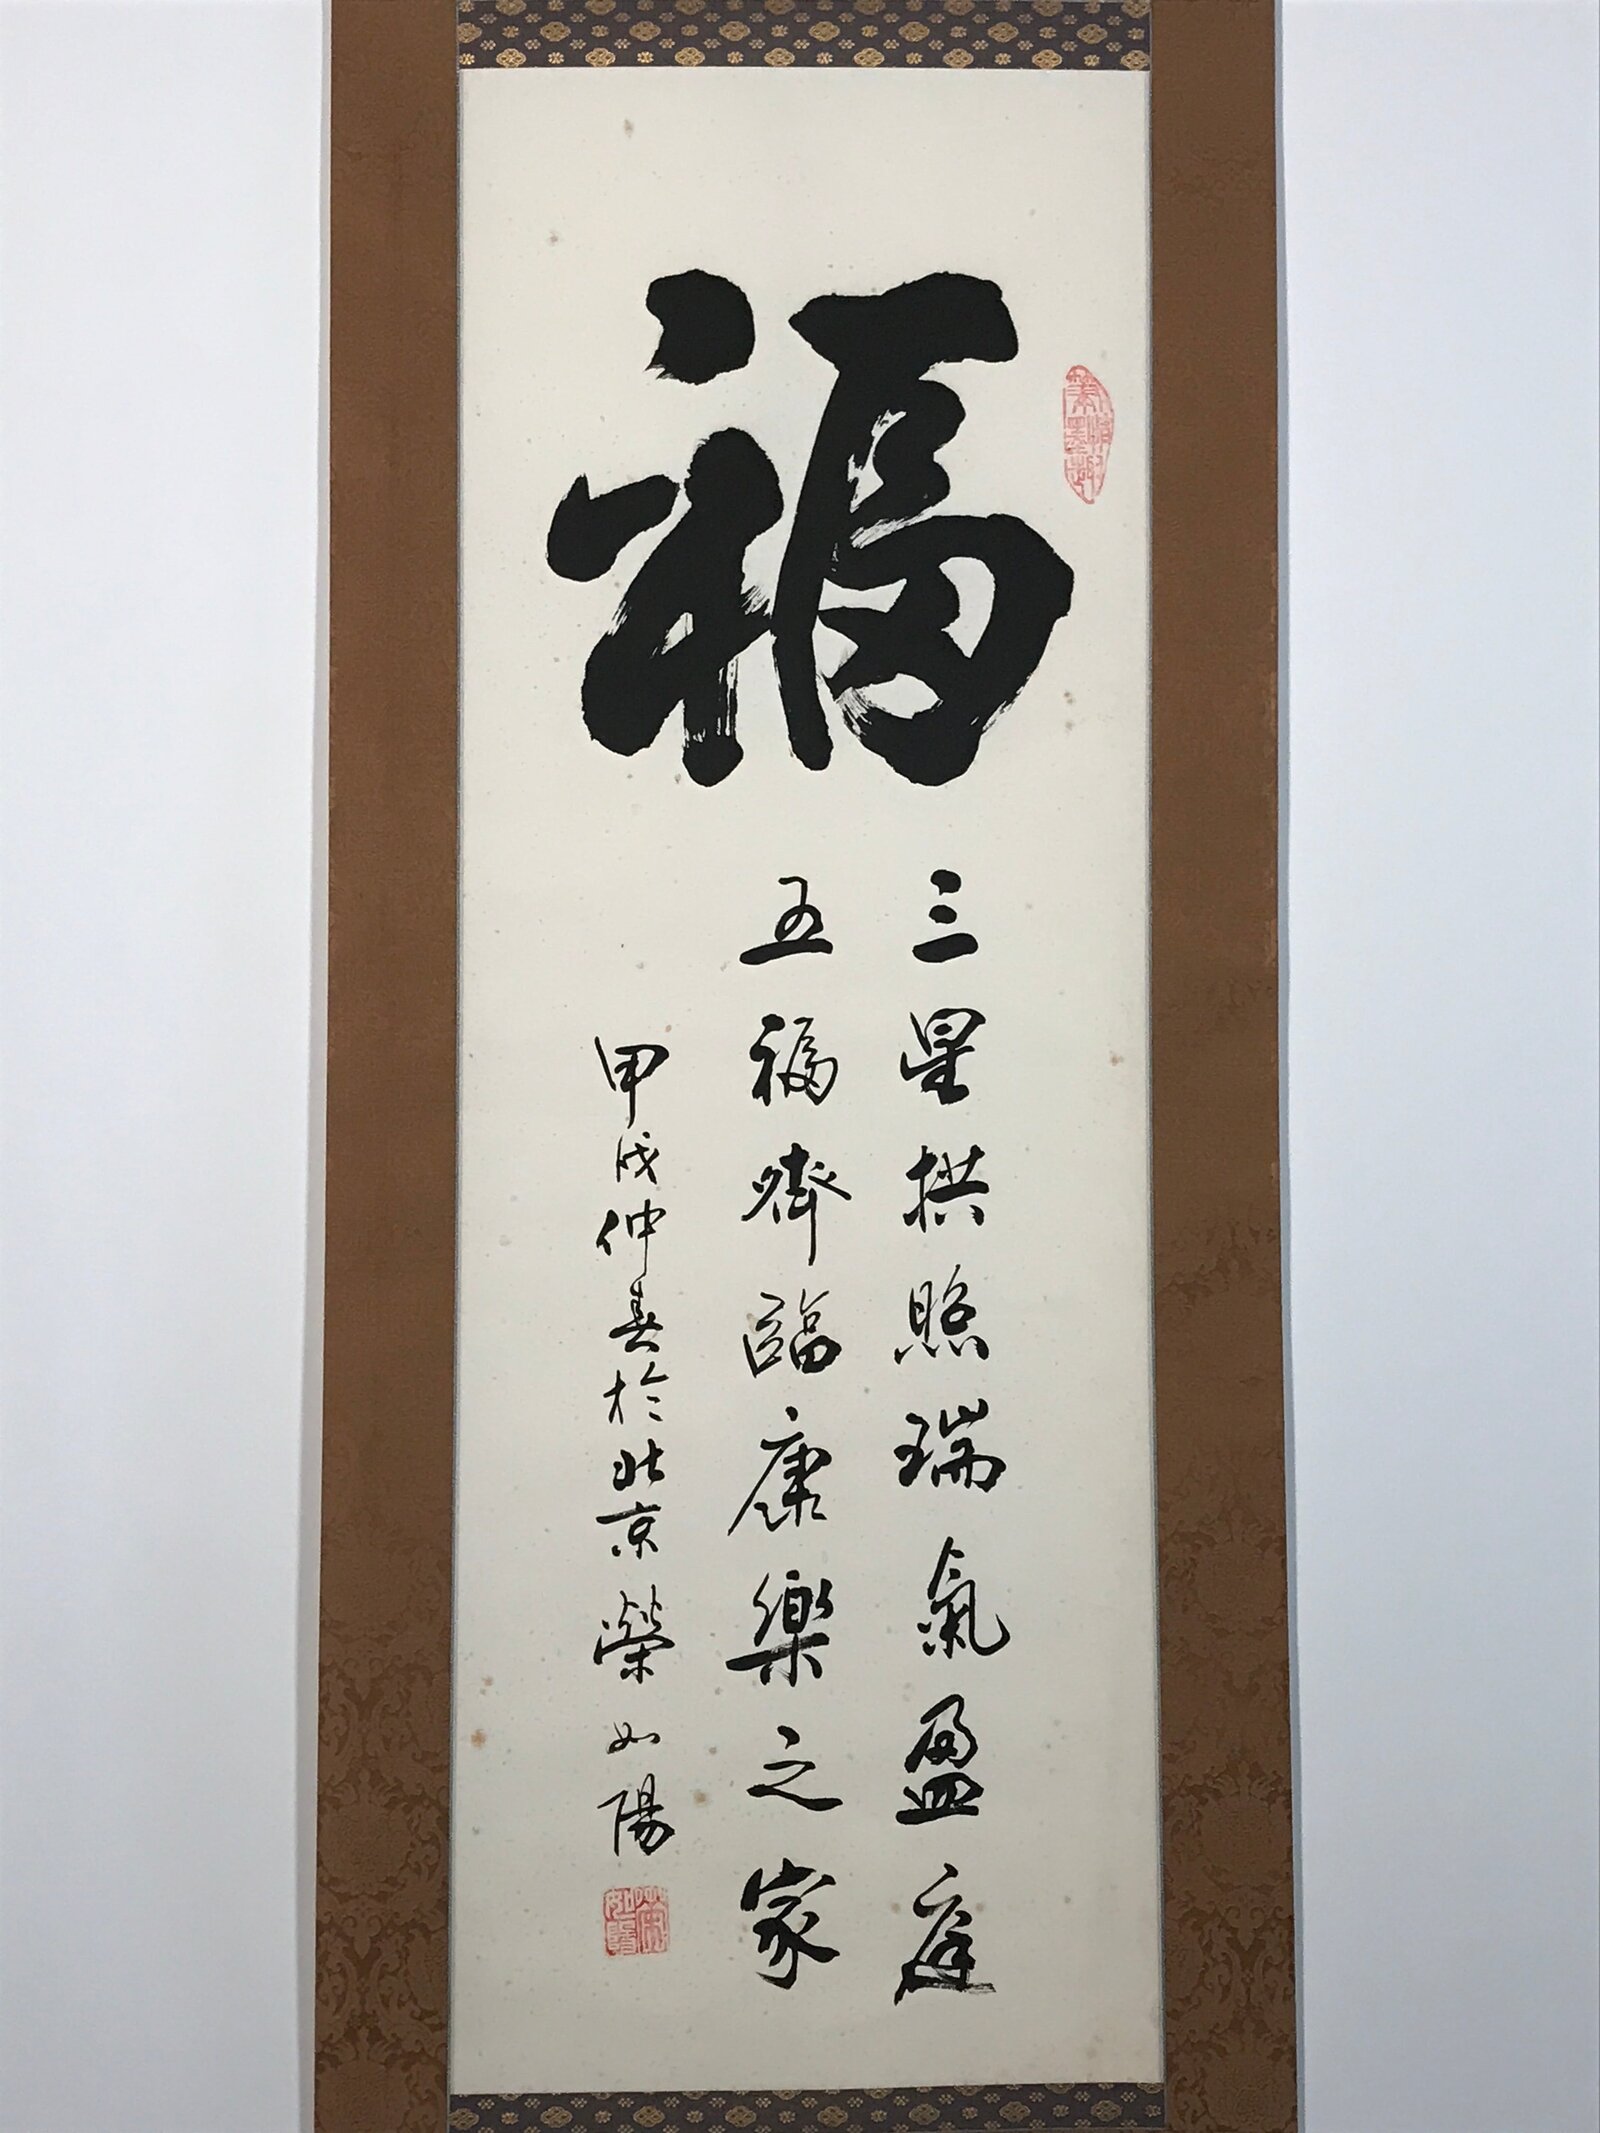 福
三星拱照瑞氣盈庭
五福齊臨康樂之家
甲戌仲春於北京榮如陽
榮如陽